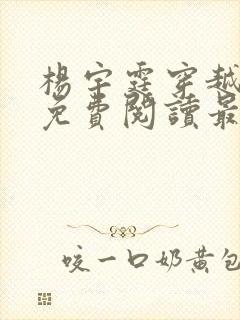 楊宇霆穿越
免費閱讀最
咬一口奶黃包